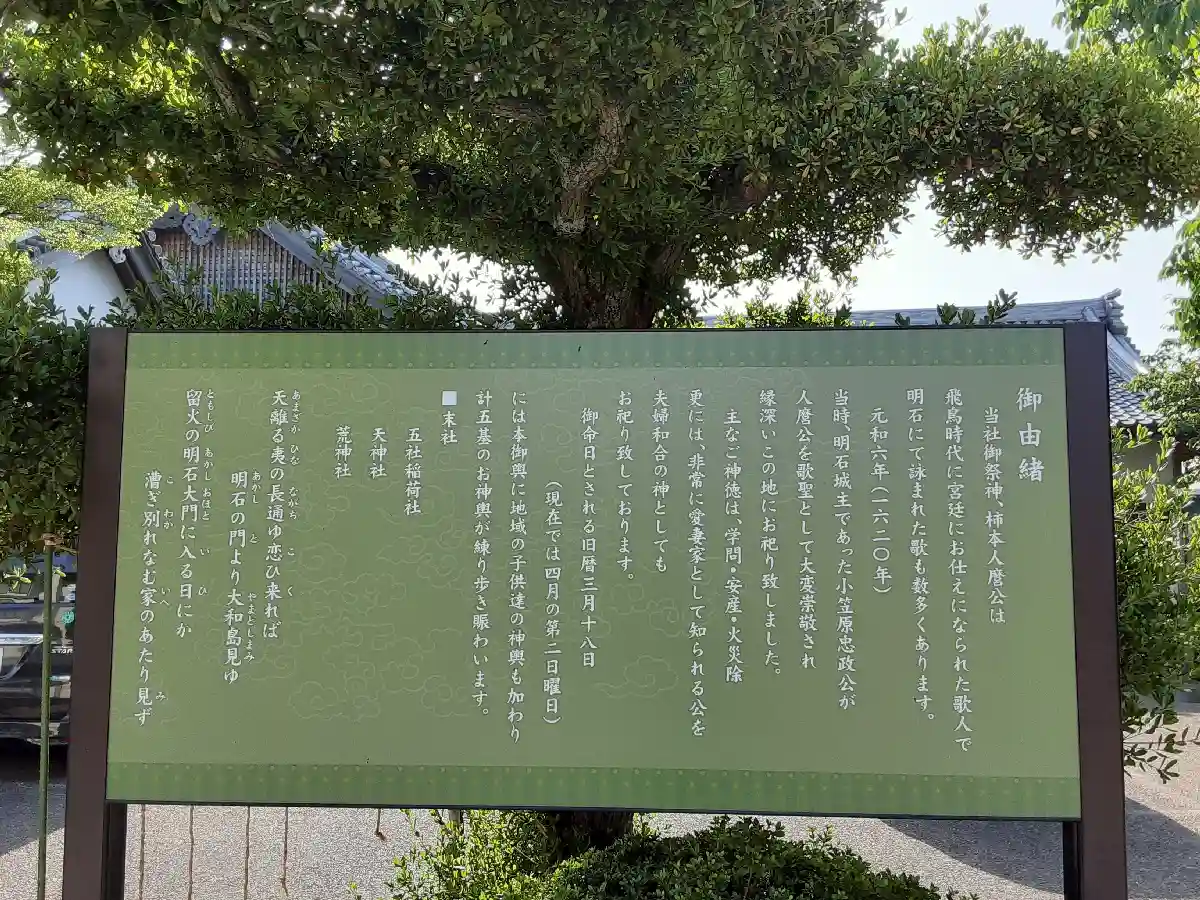 御由緒
当社御祭神、柿本人麿公は
飛鳥時代に宮廷にお仕えになられた歌人で
明石にて詠まれた歌も数多くあります。
元和六年(一六二〇年)
当時、明石城主であった小笠原忠政公が
人麿公を歌聖として大変崇敬され
縁深いこの地にお祀り致しました。
主なご神徳は、学問・安産・火災除
更には、非常に愛妻家として知られる公を
夫婦和合の神としても
お祀り致しております。
御命日とされる旧暦三月十八日
(現在では四月の第二日曜日)
には本御輿に地域の子供達の神輿も加わり
計五基のお神輿が練り歩き賑わいます。
■末社
五社稲荷社
天神社
荒神社
天離る夷の長通ゆ恋ひ来れば
あまざか ひな ながち こ く
明石の門より大和島見ゆ
あかし と やまとしまみ
留火の明石大門に入る日にか
ともしび あかし おほと い ひ
漕ぎ別れなむ家のあたり見ず
こ わか いへ み